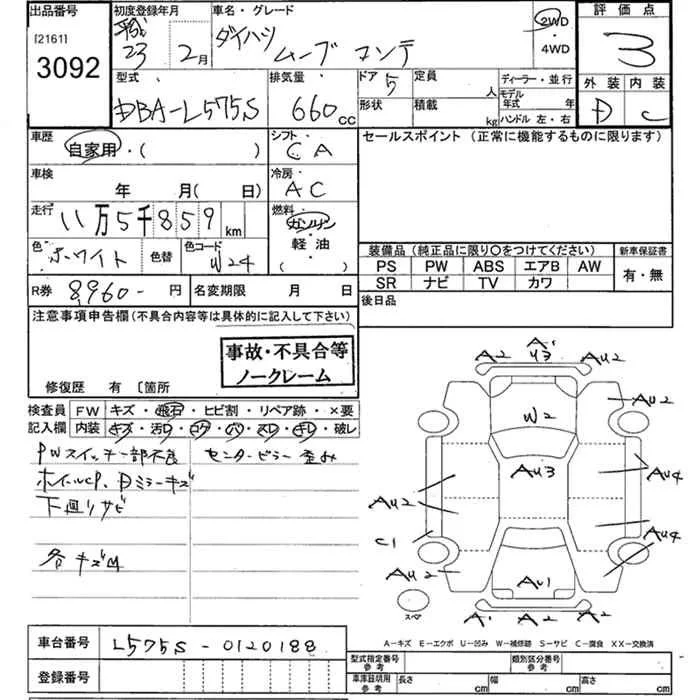 出品番号 初度登録年月 車名・グレード 評価点
[2161] 平成 ダイハツ 2WD
3092 23 2月 ムーブ コンテ ・4WD 3
型式 排気量 ドア 5 定員 人 ディーラー・並行 外装 内装
DBA-L575S 660cc 形状 積載 kg モデル年式 年 D C
ハンドル 左・右
車歴 シフト・ セールスポイント (正常に機能するものに限ります)
自家用・( ) CA
車検 冷房・
年 月( 日) AC
走行 燃料
11万5千859km ガソリン
・
軽油
色 ホワイト 色替 色コード W24 ・( )
装備品 (純正品に限り○をつけてください) 新車保証書
PS PW ABS エアB AW 有・無
SR ナビ TV カワ
R券 8,960- 円 名変期限 月 日 後日品
注意事項申告欄 (不具合内容等は具体的に記入して下さい)
事故・不具合等
ノークレーム
修復歴 有 [箇所
検査員 FW キズ・飛石・ヒビ割・リペア跡・×要
記入欄 内装 キズ・汚レ・コゲ・穴・スレ・キレ・破レ
PWスイッチ一部不良 センターピラー歪み
ホイールCP、Dミラーキズ
下廻りサビ
各キズM
A2 A' U3 AU2
W2 AU2
AU3
AU2 AU4
C1 AU4
AU2 AU1
スペア
A' A2 A2
A-キズ E-エクボ U-凹み W-補修跡 S-サビ C-腐食 XX-交換済
車台番号 L575S-0120188
型式指定番号 参考 類別区分番号 参考
登録番号 車庫証明用 参考 長さ cm 幅 cm 高さ cm